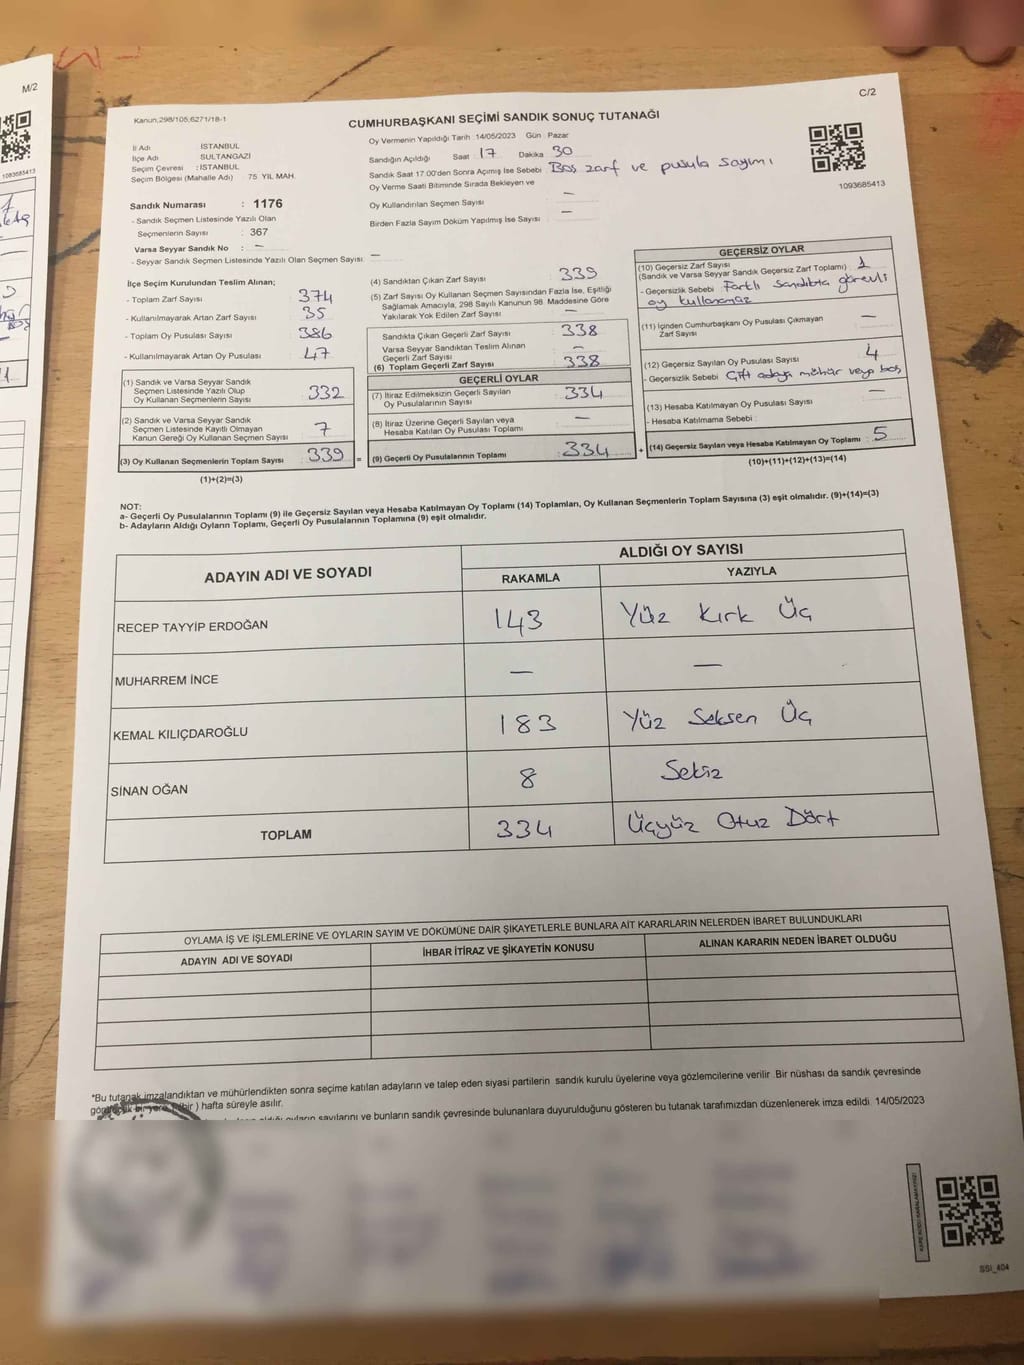 M/2
1093685413
C/2
Kanun,298/105,6271/18-1
CUMHURBAŞKANI SEÇİMİ SANDIK SONUÇ TUTANAĞI
İl Adı İSTANBUL
İlçe Adı SULTANGAZİ
Seçim Çevresi : İSTANBUL
Seçim Bölgesi (Mahalle Adı) 75 YIL MAH.
Oy Vermenin Yapıldığı Tarih 14/05/2023 Gün : Pazar
Sandığın Açıldığı Saat 17 Dakika 30
Sandık Saat 17:00'den Sonra Açımış İse Sebebi Boş zarf ve pusula sayımı
Oy Verme Saati Bitiminde Sırada Bekleyen ve
Oy Kullandırılan Seçmen Sayısı —
Birden Fazla Sayım Döküm Yapılmış İse Sayısı —
1093685413
Sandık Numarası : 1176
- Sandık Seçmen Listesinde Yazılı Olan
Seçmenlerin Sayısı : 367
Varsa Seyyar Sandık No : —
- Seyyar Sandık Seçmen Listesinde Yazılı Olan Seçmen Sayısı: —
İlçe Seçim Kurulundan Teslim Alınan;
- Toplam Zarf Sayısı 374
- Kullanılmayarak Artan Zarf Sayısı 35
- Toplam Oy Pusulası Sayısı 386
- Kullanılmayarak Artan Oy Pusulası 47
(1) Sandık ve Varsa Seyyar Sandık
Seçmen Listesinde Yazılı Olup
Oy Kullanan Seçmenlerin Sayısı 332
(2) Sandık ve Varsa Seyyar Sandık
Seçmen Listesinde Kayıtlı Olmayan
Kanun Gereği Oy Kullanan Seçmen Sayısı 7
(3) Oy Kullanan Seçmenlerin Toplam Sayısı 339 =
(1)+(2)=(3)
(4) Sandıktan Çıkan Zarf Sayısı 339
(5) Zarf Sayısı Oy Kullanan Seçmen Sayısından Fazla İse, Eşitliği
Sağlamak Amacıyla, 298 Sayılı Kanunun 98. Maddesine Göre
Yakılarak Yok Edilen Zarf Sayısı —
Sandıkta Çıkan Geçerli Zarf Sayısı 338
Varsa Seyyar Sandıktan Teslim Alınan
Geçerli Zarf Sayısı —
(6) Toplam Geçerli Zarf Sayısı 338
GEÇERLİ OYLAR
(7) İtiraz Edilmeksizin Geçerli Sayılan
Oy Pusulalarının Sayısı 334
(8) İtiraz Üzerine Geçerli Sayılan veya
Hesaba Katılan Oy Pusulası Toplamı —
(9) Geçerli Oy Pusulalarının Toplamı : 334 +
GEÇERSİZ OYLAR
(10) Geçersiz Zarf Sayısı
(Sandık ve Varsa Seyyar Sandık Geçersiz Zarf Toplamı) 1
- Geçersizlik Sebebi Farklı sandıkta görevli
oy kullanamaz
(11) İçinden Cumhurbaşkanı Oy Pusulası Çıkmayan
Zarf Sayısı —
(12) Geçersiz Sayılan Oy Pusulası Sayısı 4
- Geçersizlik Sebebi Çift adaya mühür veya boş
(13) Hesaba Katılmayan Oy Pusulası Sayısı —
- Hesaba Katılmama Sebebi :
(14) Geçersiz Sayılan veya Hesaba Katılmayan Oy Toplamı : 5
(10)+(11)+(12)+(13)=(14)
NOT:
a- Geçerli Oy Pusulalarının Toplamı (9) ile Geçersiz Sayılan veya Hesaba Katılmayan Oy Toplamı (14) Toplamları, Oy Kullanan Seçmenlerin Toplam Sayısına (3) eşit olmalıdır. (9)+(14)=(3)
b- Adayların Aldığı Oyların Toplamı, Geçerli Oy Pusulalarının Toplamına (9) eşit olmalıdır.
ADAYIN ADI VE SOYADI ALDIĞI OY SAYISI
RAKAMLA YAZIYLA
RECEP TAYYİP ERDOĞAN 143 Yüz Kırk Üç
MUHARREM İNCE — —
KEMAL KILIÇDAROĞLU 183 Yüz Seksen Üç
SİNAN OĞAN 8 Sekiz
TOPLAM 334 Üçyüz Otuz Dört
OYLAMA İŞ VE İŞLEMLERİNE VE OYLARIN SAYIM VE DÖKÜMÜNE DAİR ŞİKAYETLERLE BUNLARA AİT KARARLARIN NELERDEN İBARET BULUNDUKLARI
ADAYIN ADI VE SOYADI İHBAR İTİRAZ VE ŞİKAYETİN KONUSU ALINAN KARARIN NEDEN İBARET OLDUĞU
*Bu tutanak imzalandıktan ve mühürlendikten sonra seçime katılan adayların ve talep eden siyasi partilerin sandık kurulu üyelerine veya gözlemcilerine verilir. Bir nüshası da sandık çevresinde
bir ) hafta süreyle asılır.
oyların sayılarını ve bunların sandık çevresinde bulunanlara duyurulduğunu gösteren bu tutanak tarafımızdan düzenlenerek imza edildi. 14/05/2023
SSI_404